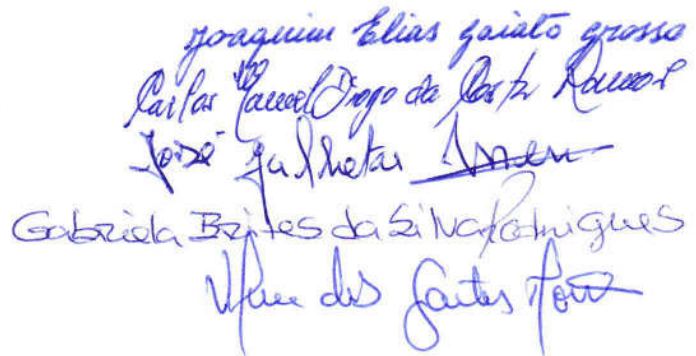 Joaquim Elias gaiato grosso
Carlos Manuel Diogo da Costa Ramos
José Galhetas
Gabriela Brites da Silva Rodrigues
dos Santos